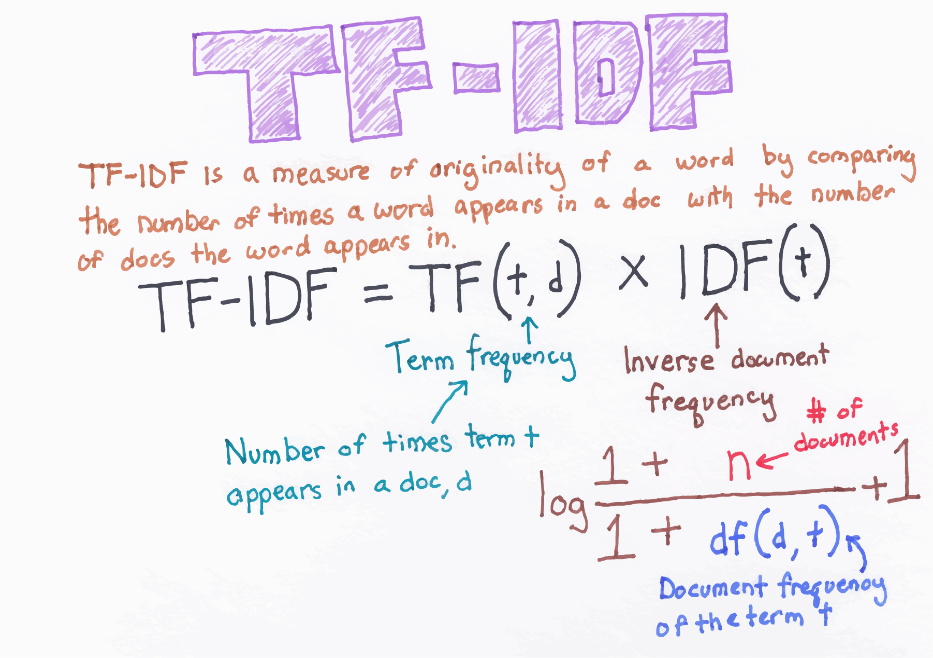 TF-IDF
TF-IDF is a measure of originality of a word by comparing
the number of times a word appears in a doc with the number
of docs the word appears in.
TF-IDF = TF(t, d) x IDF(t)
Term frequency
Inverse document
frequency
Number of times term t
appears in a doc, d
# of
documents
log (1 + n) / (1 + df(d, t)) + 1
Document frequency
of the term t